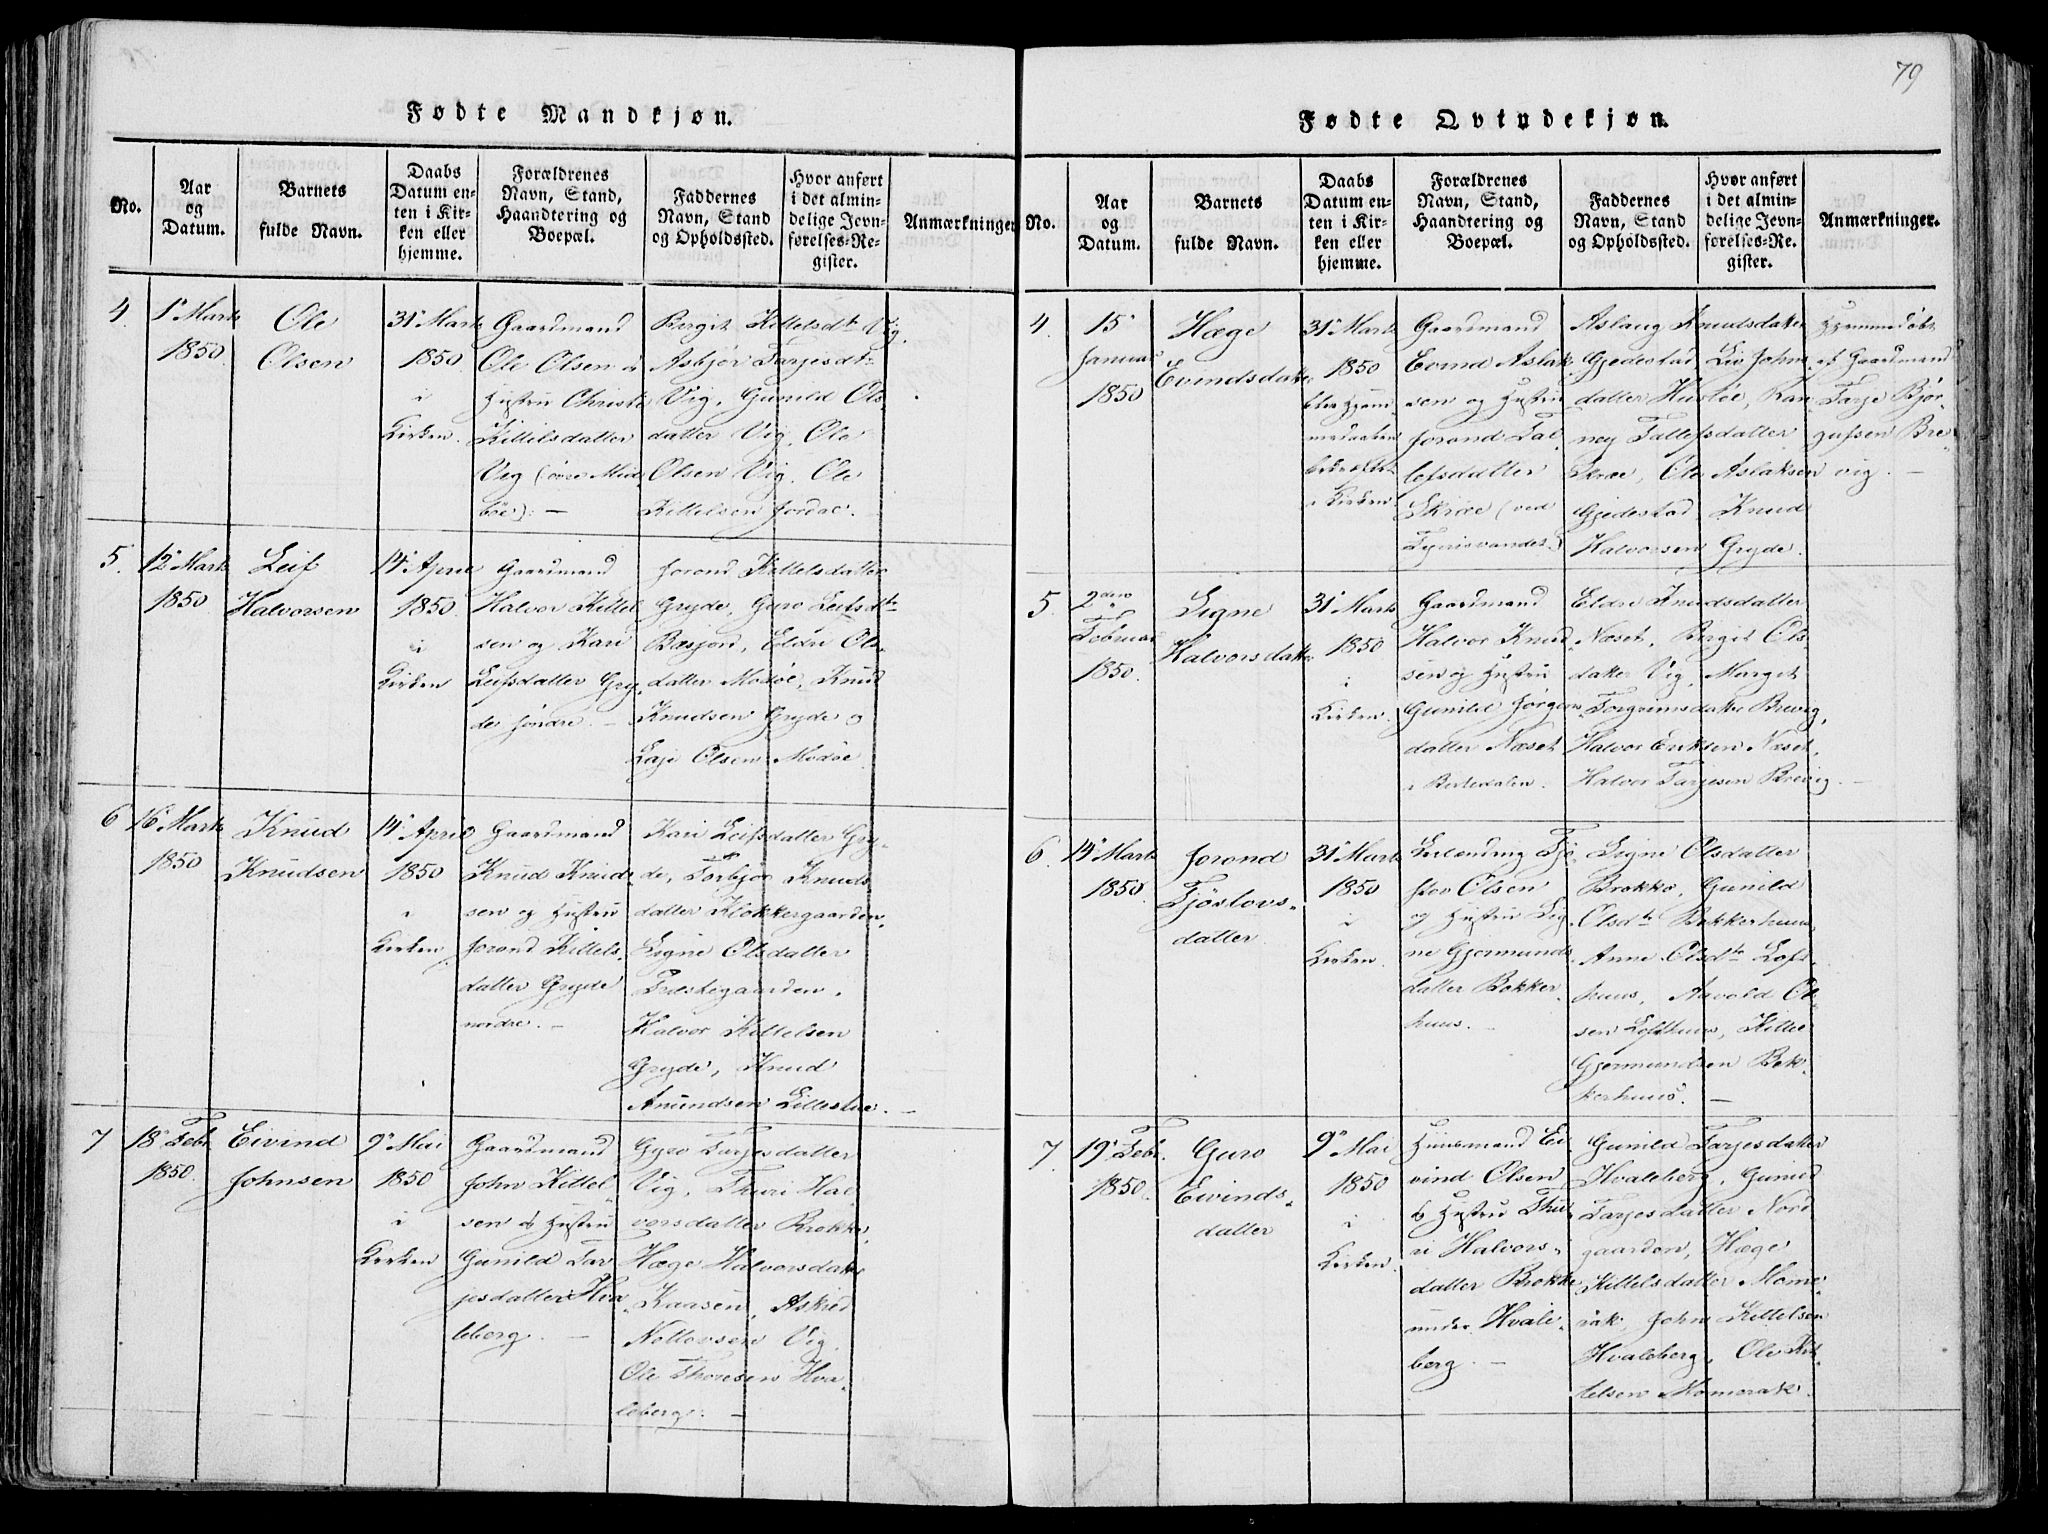 79
Fødte Mandkjøn.
No.
Aar
og
Datum.
Barnets
fulde Navn.
Daabs
Datum en-
ten i Kir-
ken eller
hjemme.
Forældrenes
Navn, Stand,
Haandtering og
Boepæl.
Faddernes
Navn, Stand
og Opholdssted.
Hvor anført
i det almin-
delige Jevn-
førelses-Re-
gister.
Anmærkninger
4.
1 Marts
1850.
Ole
Olsen
31 Marts
1850
i
Kirken.
Gaardmand
Ole Olsen &
Hustru Christi
Kittilsdatter
Vig (övre Mid-
böe). —
Birgit Kittelsdtr Vig.
Asbjör Tarjesdtr
Vig, Gunild Ols-
datter Vig, Ole
Olsen Vig, Ole
Kittelsen Jordal.
5.
12 Marts
1850
Leif
Halvorsen
14 April
1850.
i
Kirken
Gaardmand
Halvor Kittel-
sen og Kari
Leifsdatter Gry-
de söndre. —
Jorond Kittelsdatter
Gryde, Guro Leifsdtr
Bæsjord, Eldri Ols-
datter Modöe, Knud
Knudsen Gryde og
Olsen Modöe
6
16 Marts
1850
Knud
Knudsen
14 April
1850
i
Kirken
Gaardmand
Knud Knud-
sen og Hustru
Jorond Kittels-
datter Gryde
nordre. —
Kari Leifsdatter Gry-
de, Torbjör Knuds-
datter Klokkergaarden,
Signe Olsdatter
Præstegaarden,
Halvor Kittelsen
Gryde, Knud
Anundsen Lillestue. —
7
18 Febr.
1850.
Eivind
Johnsen
9 Mai
1850
i
Kirken
Gaardmand
John Kittel-
sen & Hustru
Gunild Tar-
jesdatter Hva-
leberg. —
Gyro Tarjesdatter
Vig, Thuri Hal-
vorsdatter Brokke,
Hæge Halvorsdatter
Kaasen, Askied
Nottovsen Vig.
Ole Thoresen Hva-
leberg. —
Fødte Qvindekjøn.
No.
Aar
og
Datum.
Barnets
fulde Navn.
Daabs
Datum en-
ten i Kir-
ken eller
hjemme.
Forældrenes
Navn, Stand,
Haandtering og
Boepæl.
Faddernes
Navn, Stand
og Opholdssted.
Hvor anført
i det almin-
delige Jevn-
førelses-Re-
gister.
Anmærkninger.
4.
15
Januar
1850
Hæge
Evindsdatter
31 Marts
1850
blev Hjem-
medaaben
i Kirken
Gaardmand
Evind Aslak-
sen og Hustru
Jorond Tal-
lefsdatter
Skræe (ved
Aslaug Knudsdatter
Gjedestad, Liv Johns-
datter Husløe, Ran-
ney Tallefsdatter
Skræe, Ole Aslaksen
Gjedestad, Knud
Halvorsen Gryde.
Hjemmedøbt
af Gaardmand
Tarje Bjør-
gufsen Bre-
vig. —
5.
2den
Februar
1850.
Signe
Halvorsdatter
31 Marts
1850
i
Kirken.
Gaardmand
Halvor Knud-
sen og Hustru
Gunild Jörgens-
datter Næset
i Bortedalen.
Eldri Knudsdatter
Næset, Birgit Ols-
datter Vig, Margit
Torgrimsdatter Brevig,
Halvor Eriksen Næset,
Halvor Tarjesen Brevig. —
6.
14 Marts
1850.
Jorond
Tjöslovs-
datter
31 Marts
1850
i
Kirken.
Leilænding Tjö-
slov Olsen
og Hustru Sig-
ne Gjermunds-
datter Bekker-
huus. —
Signe Olsdatter
Brokke, Gunild
Olsdtr Bekkerhuus,
Anne Olsdtr Loft-
huus, Aavold Ol-
sen Lofthuus, Kittel
Gjermundsen Bek-
kerhuus. —
7.
19 Febr.
1850.
Guro
Eivinds-
datter
9 Mai
1850
i
Kirken.
Huusmand Ei-
vind Olsen
& Hustru Thu-
ri Halvors-
datter Brokke
under Hvale-
berg. —
Gunild Tarjesdatter
Hvaleberg, Gunild
Tarjesdatter Nord-
gaarden, Hæge
Kittelsdatter Mome-
rak, John Kittelsen
Hvaleberg, Ole Kit-
telsen Momerak.